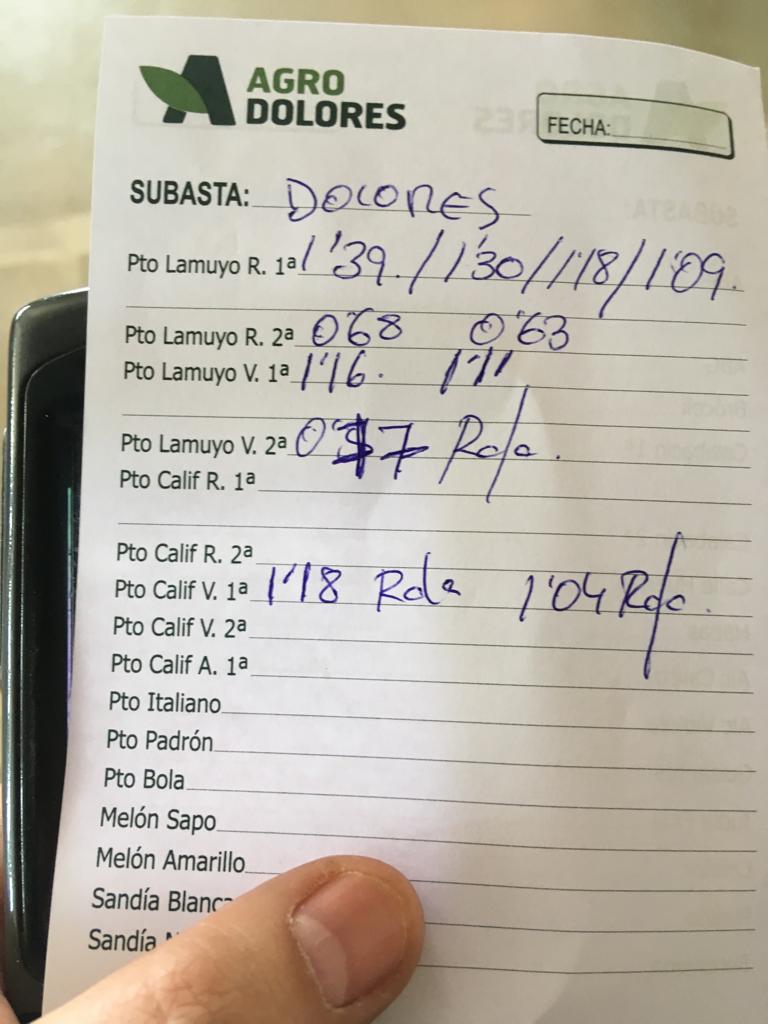 AGRO
DOLORES
FECHA:
SUBASTA: DOLORES
Pto Lamuyo R. 1ª 1'39. / 1'30 / 1'18 / 1'09.
Pto Lamuyo R. 2ª 0'68 0'63
Pto Lamuyo V. 1ª 1'16. 1'11
Pto Lamuyo V. 2ª
Pto Calif R. 1ª
Pto Calif R. 2ª
Pto Calif V. 1ª 1'18 1'04
Pto Calif V. 2ª
Pto Calif A. 1ª
Pto Italiano
Pto Padrón
Pto Bola
Melón Sapo
Melón Amarillo
Sandía
Sandía